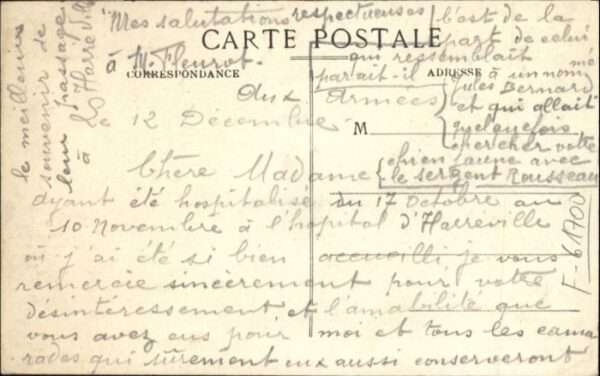 "Mes salutations respectueuses
à M. Fleurot.
CARTE POSTALE
CORRESPONDANCE
ADRESSE
M
Aux Armées
le 12 Décembre
Chère Madame
ayant été hospitalisé du 17 Octobre au
10 Novembre à l'hopital d'Harréville
où j'ai été si bien accueilli je vous
remercie sincèrement pour votre
désintéressement et l'amabilité que
vous avez eus pour moi et tous les cama
rades qui sûrement eux aussi conserveront
le meilleur
souvenir de
leur passage
à Harréville
c'est de la
part de celui
qui ressemblait
parait-il à un nommé
Jules Bernard
et qui allait
quelquefois
chercher votre
chien jaune avec
le sergent Rousseau
F-61700